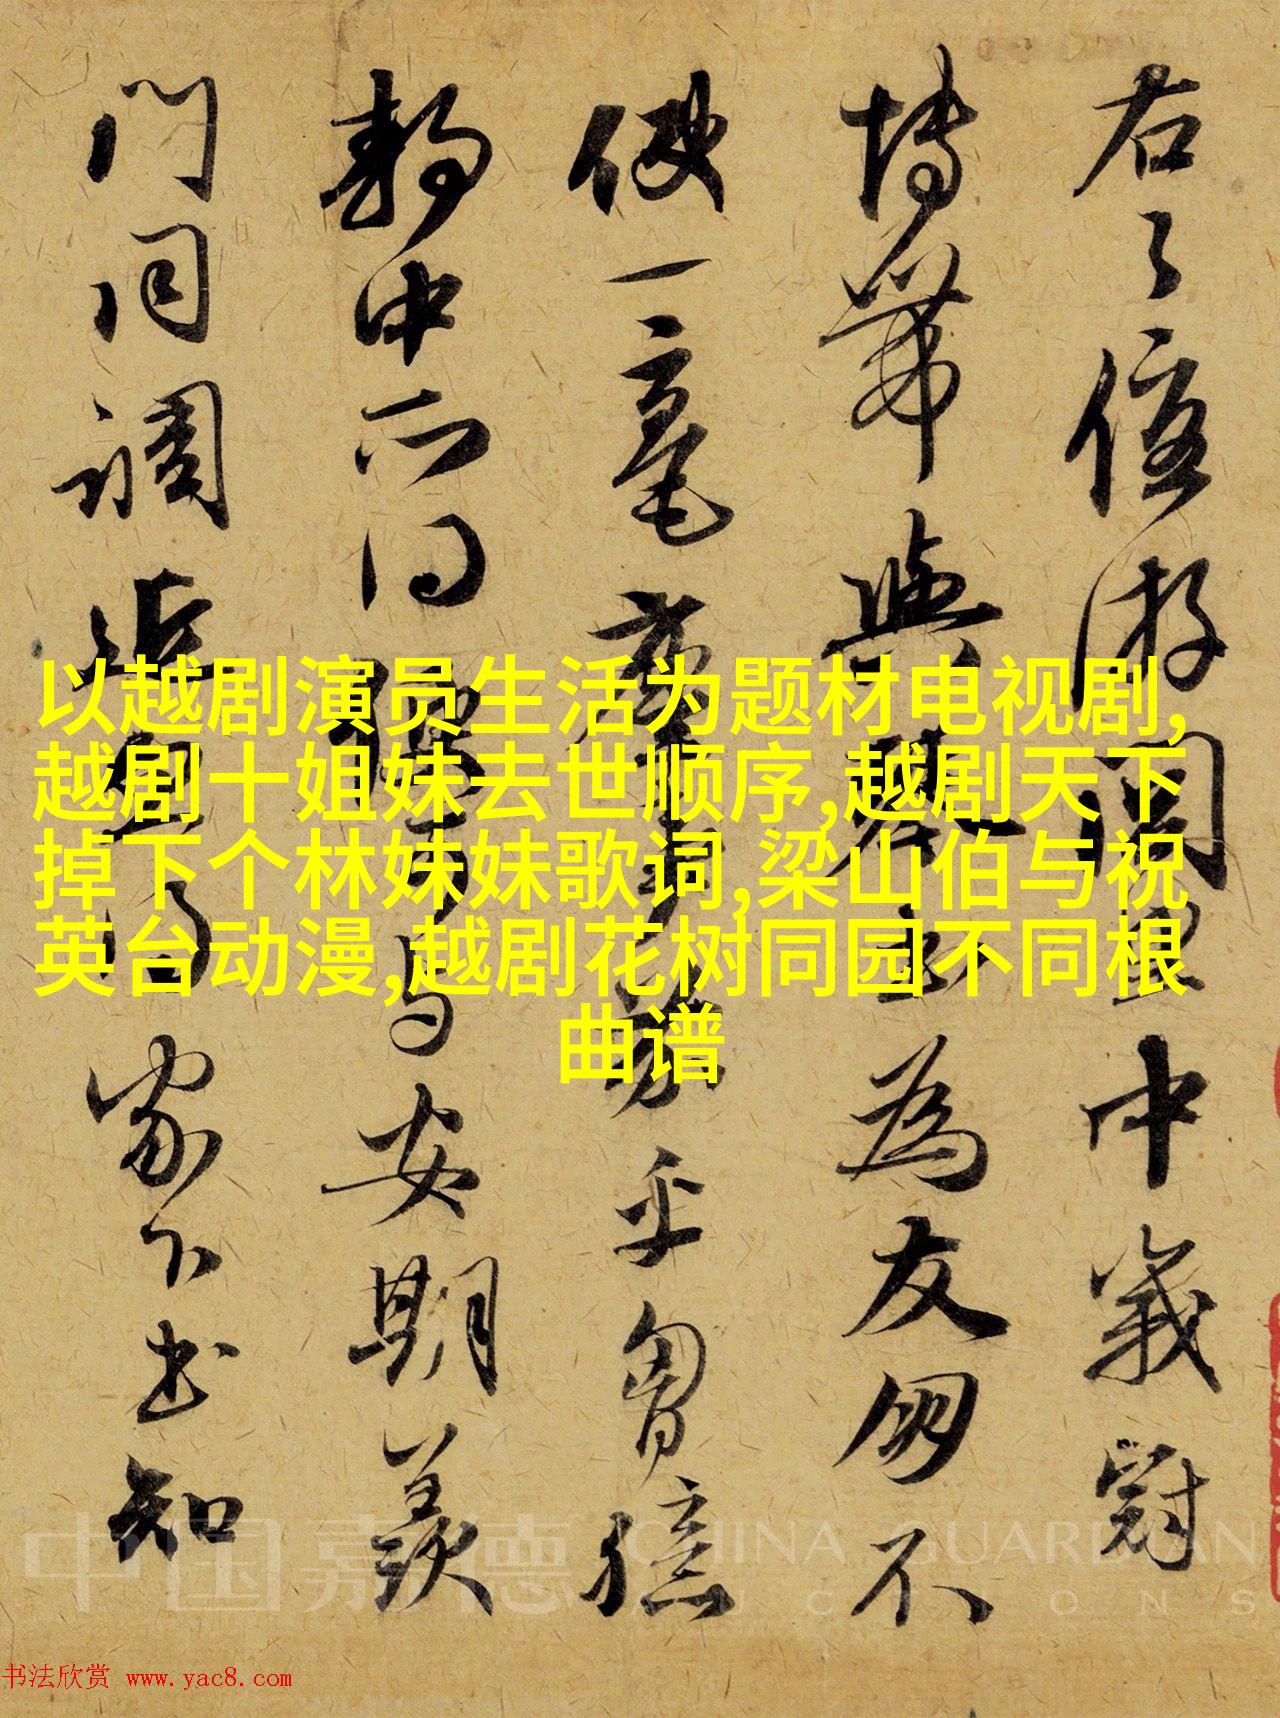 右〻優游里中峩冠
博帶與為友不
使一毫塵事乎胷臆
静中所得与安期羨
門同調家下书知
以越剧演员生活为题材电视剧,
越剧十姐妹去世顺序,越剧天下
掉下个林妹妹歌词,梁山伯与祝
英台动漫,越剧花树同园不同根
曲谱
中国嘉德 CHINA GUARDIAN
AUCTIONS
书法欣赏 www.yac8.com